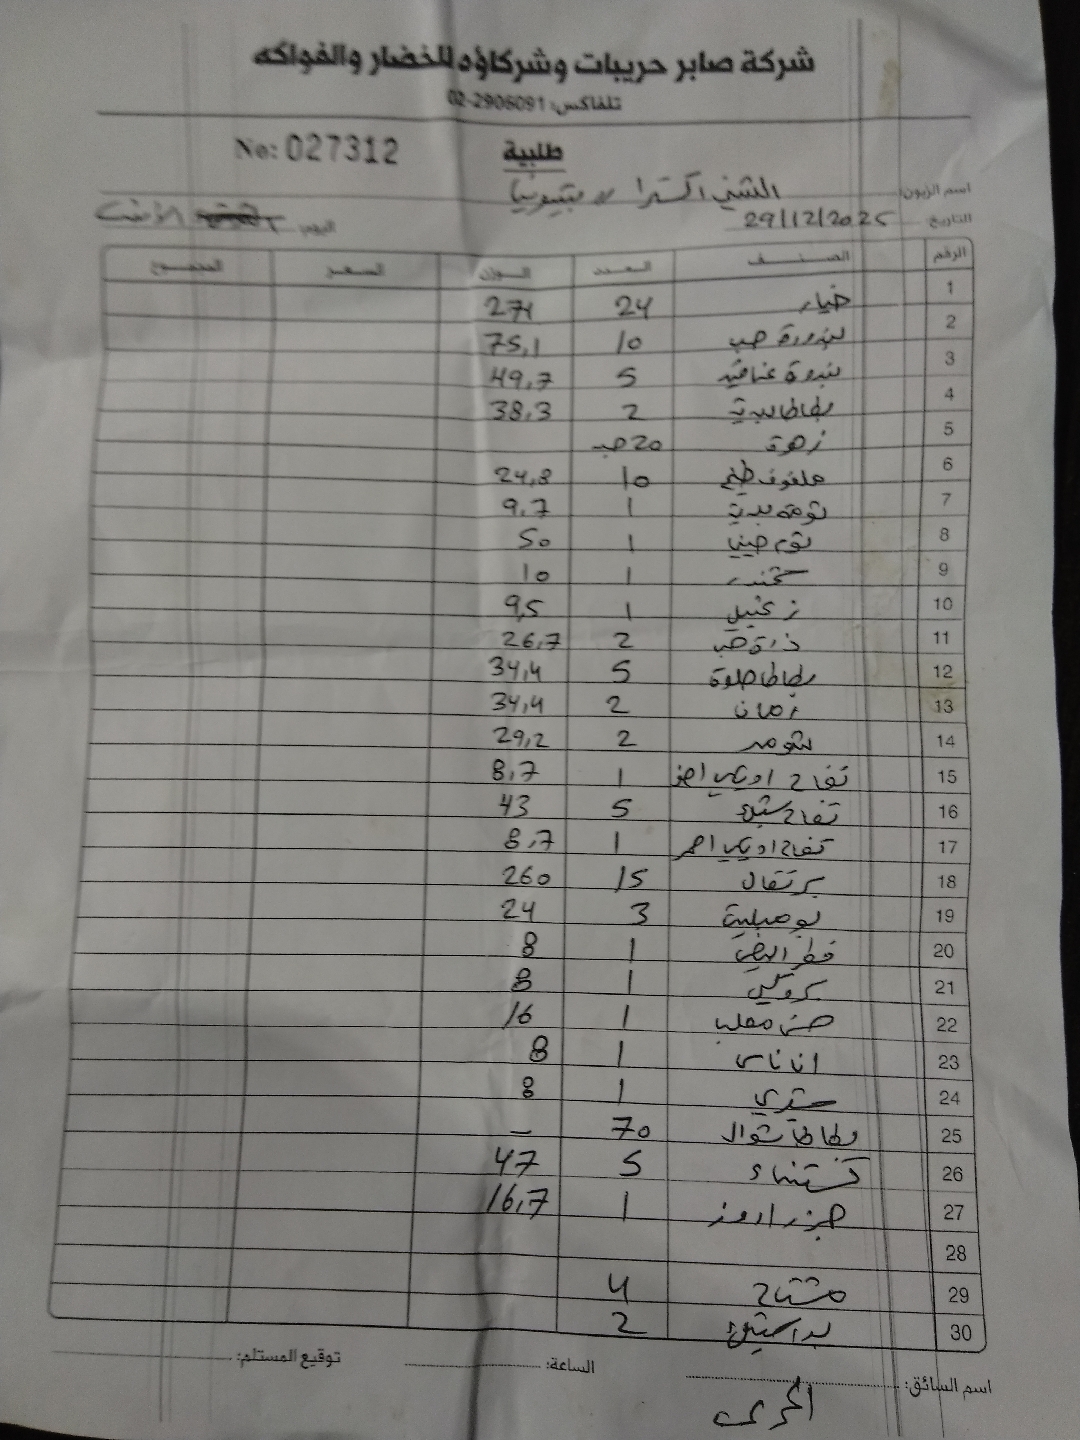 شركة صابر حريبات وشركاؤه للخضار والفواكه
تلفاكس: 02-2906091
No: 027312 طلبية
اسم الزبون: الشني اكسترا
التاريخ: 29/12/2025 اليوم:
الرقم الصنف العدد الوزن السعر المجموع
1 خيار 24 271
2 بندورة حب 10 75,1
3 بندورة عناقيد 5 49,7
4 بطاطا 2 38,3
5 زهرة 20 حبه
6 ملفوف 10 24,8
7 ثومة بلدية 1 9,7
8 ثوم صيني 1 50
9 1 10
10 زنجبيل 1 9,5
11 ذرة حب 2 26,7
12 بطاطا حلوة 5 34,4
13 رمان 2 34,4
14 شومر 2 29,2
15 تفاح 1 8,7
16 تفاح 5 43
17 تفاح احمر 1 8,7
18 برتقال 15 260
19 بوملية 3 24
20 فطر 1 8
21 بروكلي 1 8
22 خس 1 16
23 اناناس 1 8
24 1 8
25 بطاطا شوال 70 –
26 كستناء 5 47
27 جزر 1 16,7
28
29 مشتاح 4
30 2
اسم السائق: الساعة: توقيع المستلم: